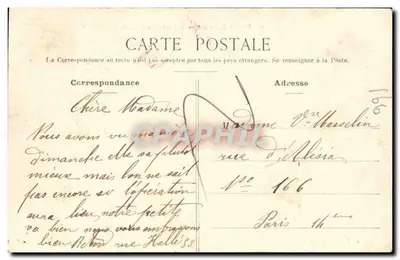 CARTE POSTALE
La Correspondance au recto n'est pas acceptée par tous les pays étrangers. Se renseigner à la Poste.
Correspondance
Adresse
Chère Madame
Nous avons vu maman
dimanche elle va plutôt
mieux mais l'on ne sait
pas encore si l'opération
aura lieu notre petite
va bien nous vous embrassons
bien rue Hallé 53
Madame Vve Masselin
rue d'Alésia
No 166
Paris 14ème
166